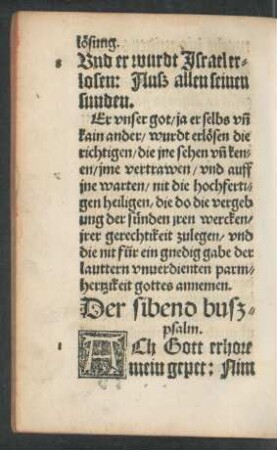 lösung.
8 Vnd er wurdt Israel er-
losen: Ausz allen seinen
sunden.
Er vnser got/ ja er selbs vn̄
kain ander/ wurdt erlösen die
richtigen/ die jne sehen vn̄ ken-
en/ jme vertrawen/ vnd auff
jne warten/ nit die hochferti-
gen heiligen/ die do die vergeb
ung der sünden jren wercken/
jrer gerechtikeit zulegen/ vnd
die nit für ein gnedig gabe der
lauttern vnuerdienten parm-
hertzikeit gottes annemen.
Der sibend busz-
psalm.
1 ACh Gott erhore
mein gepet: Nim